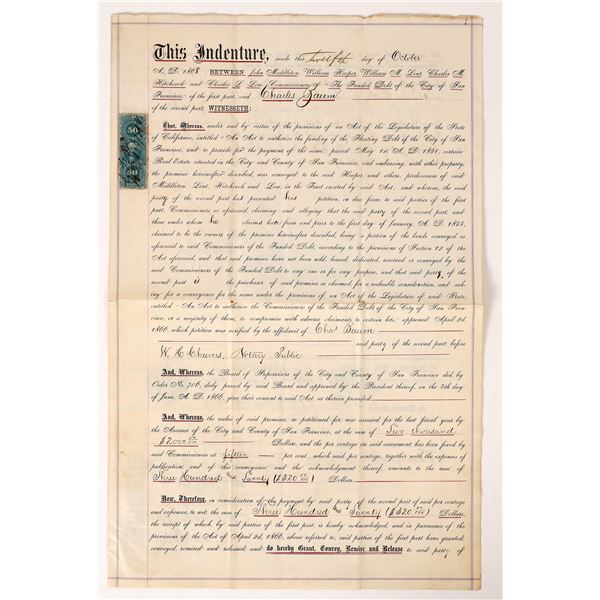 This Indenture, made this twelfth day of October
A. D. 1868, BETWEEN John Middleton, William Hooper, William M. Lent, Charles M.
Hitchcock and Charles L. Low, Commissioners of The Funded Debt of the City of San
Francisco, of the first part, and Charles Baum
of the second part, WITNESSETH:
That, Whereas, under and by virtue of the provisions of an Act of the Legislature of the State
of California, entitled "An Act to authorize the funding of the Floating Debt of the City of San
Francisco, and to provide for the payment of the same," passed May 1st, A. D. 1851, certain
Real Estate situated in the City and County of San Francisco, and embracing with other property,
the premises hereinafter described, was conveyed to the said Hooper, and others, predecessors of said
Middleton, Lent, Hitchcock and Low, in the Trust created by said Act; and whereas, the said
party of the second part has presented his petition, in due form, to said parties of the first
part, Commissioners as aforesaid, claiming and alleging that the said party of the second part, and
those under whom he claims have from and prior to the first day of January, A. D. 1855,
claimed to be the owners of the premises hereinafter described, being a portion of the lands conveyed as
aforesaid to said Commissioners of the Funded Debt, according to the provisions of Section 12 of the
Act aforesaid, and that said premises have not been sold, leased, dedicated, reserved or conveyed by the
said Commissioners of the Funded Debt to any one or for any purpose, and that said party of the
second part is the purchaser of said premises so claimed, for a valuable consideration, and ask-
ing for a conveyance for the same under the provisions of an Act of the Legislature of said State,
entitled "An Act to authorize the Commissioners of the Funded Debt of the City of San Fran-
cisco, or a majority of them, to compromise with adverse claimants to certain lots," approved April 2d,
1866, which petition was verified by the affidavit of Chas Baum
said party of the second part, before
W. H. Chevers, Notary Public
And, Whereas, the Board of Supervisors of the City and County of San Francisco did, by
Order No. 706, duly passed by said Board and approved by the President thereof, on the 5th day
of June, A. D. 1866, give their consent to said Act, as therein provided
And, Whereas, the value of said premises, so petitioned for, was assessed for the last fiscal year by
the Assessor of the City and County of San Francisco, at the sum of Two thousand
$2000 Dollars, and the per centage on said assessment has been fixed by
said Commissioners at fifteen per cent., which said per centage, together with the expenses of
publication, and of this conveyance and the acknowledgment thereof, amounts to the sum of
Three Hundred and Twenty ($320) Dollars
Now, Therefore, in consideration of the payment by said party of the second part of said per centage
and expenses, to wit, the sum of Three Hundred and Twenty ($320) Dollars,
the receipt of which, by said parties of the first part, is hereby acknowledged, and in pursuance of the
provisions of the Act of April 2d, 1866, above referred to, said parties of the first part have granted,
conveyed, remised and released, and do hereby Grant, Convey, Remise and Release to said party of
50
50